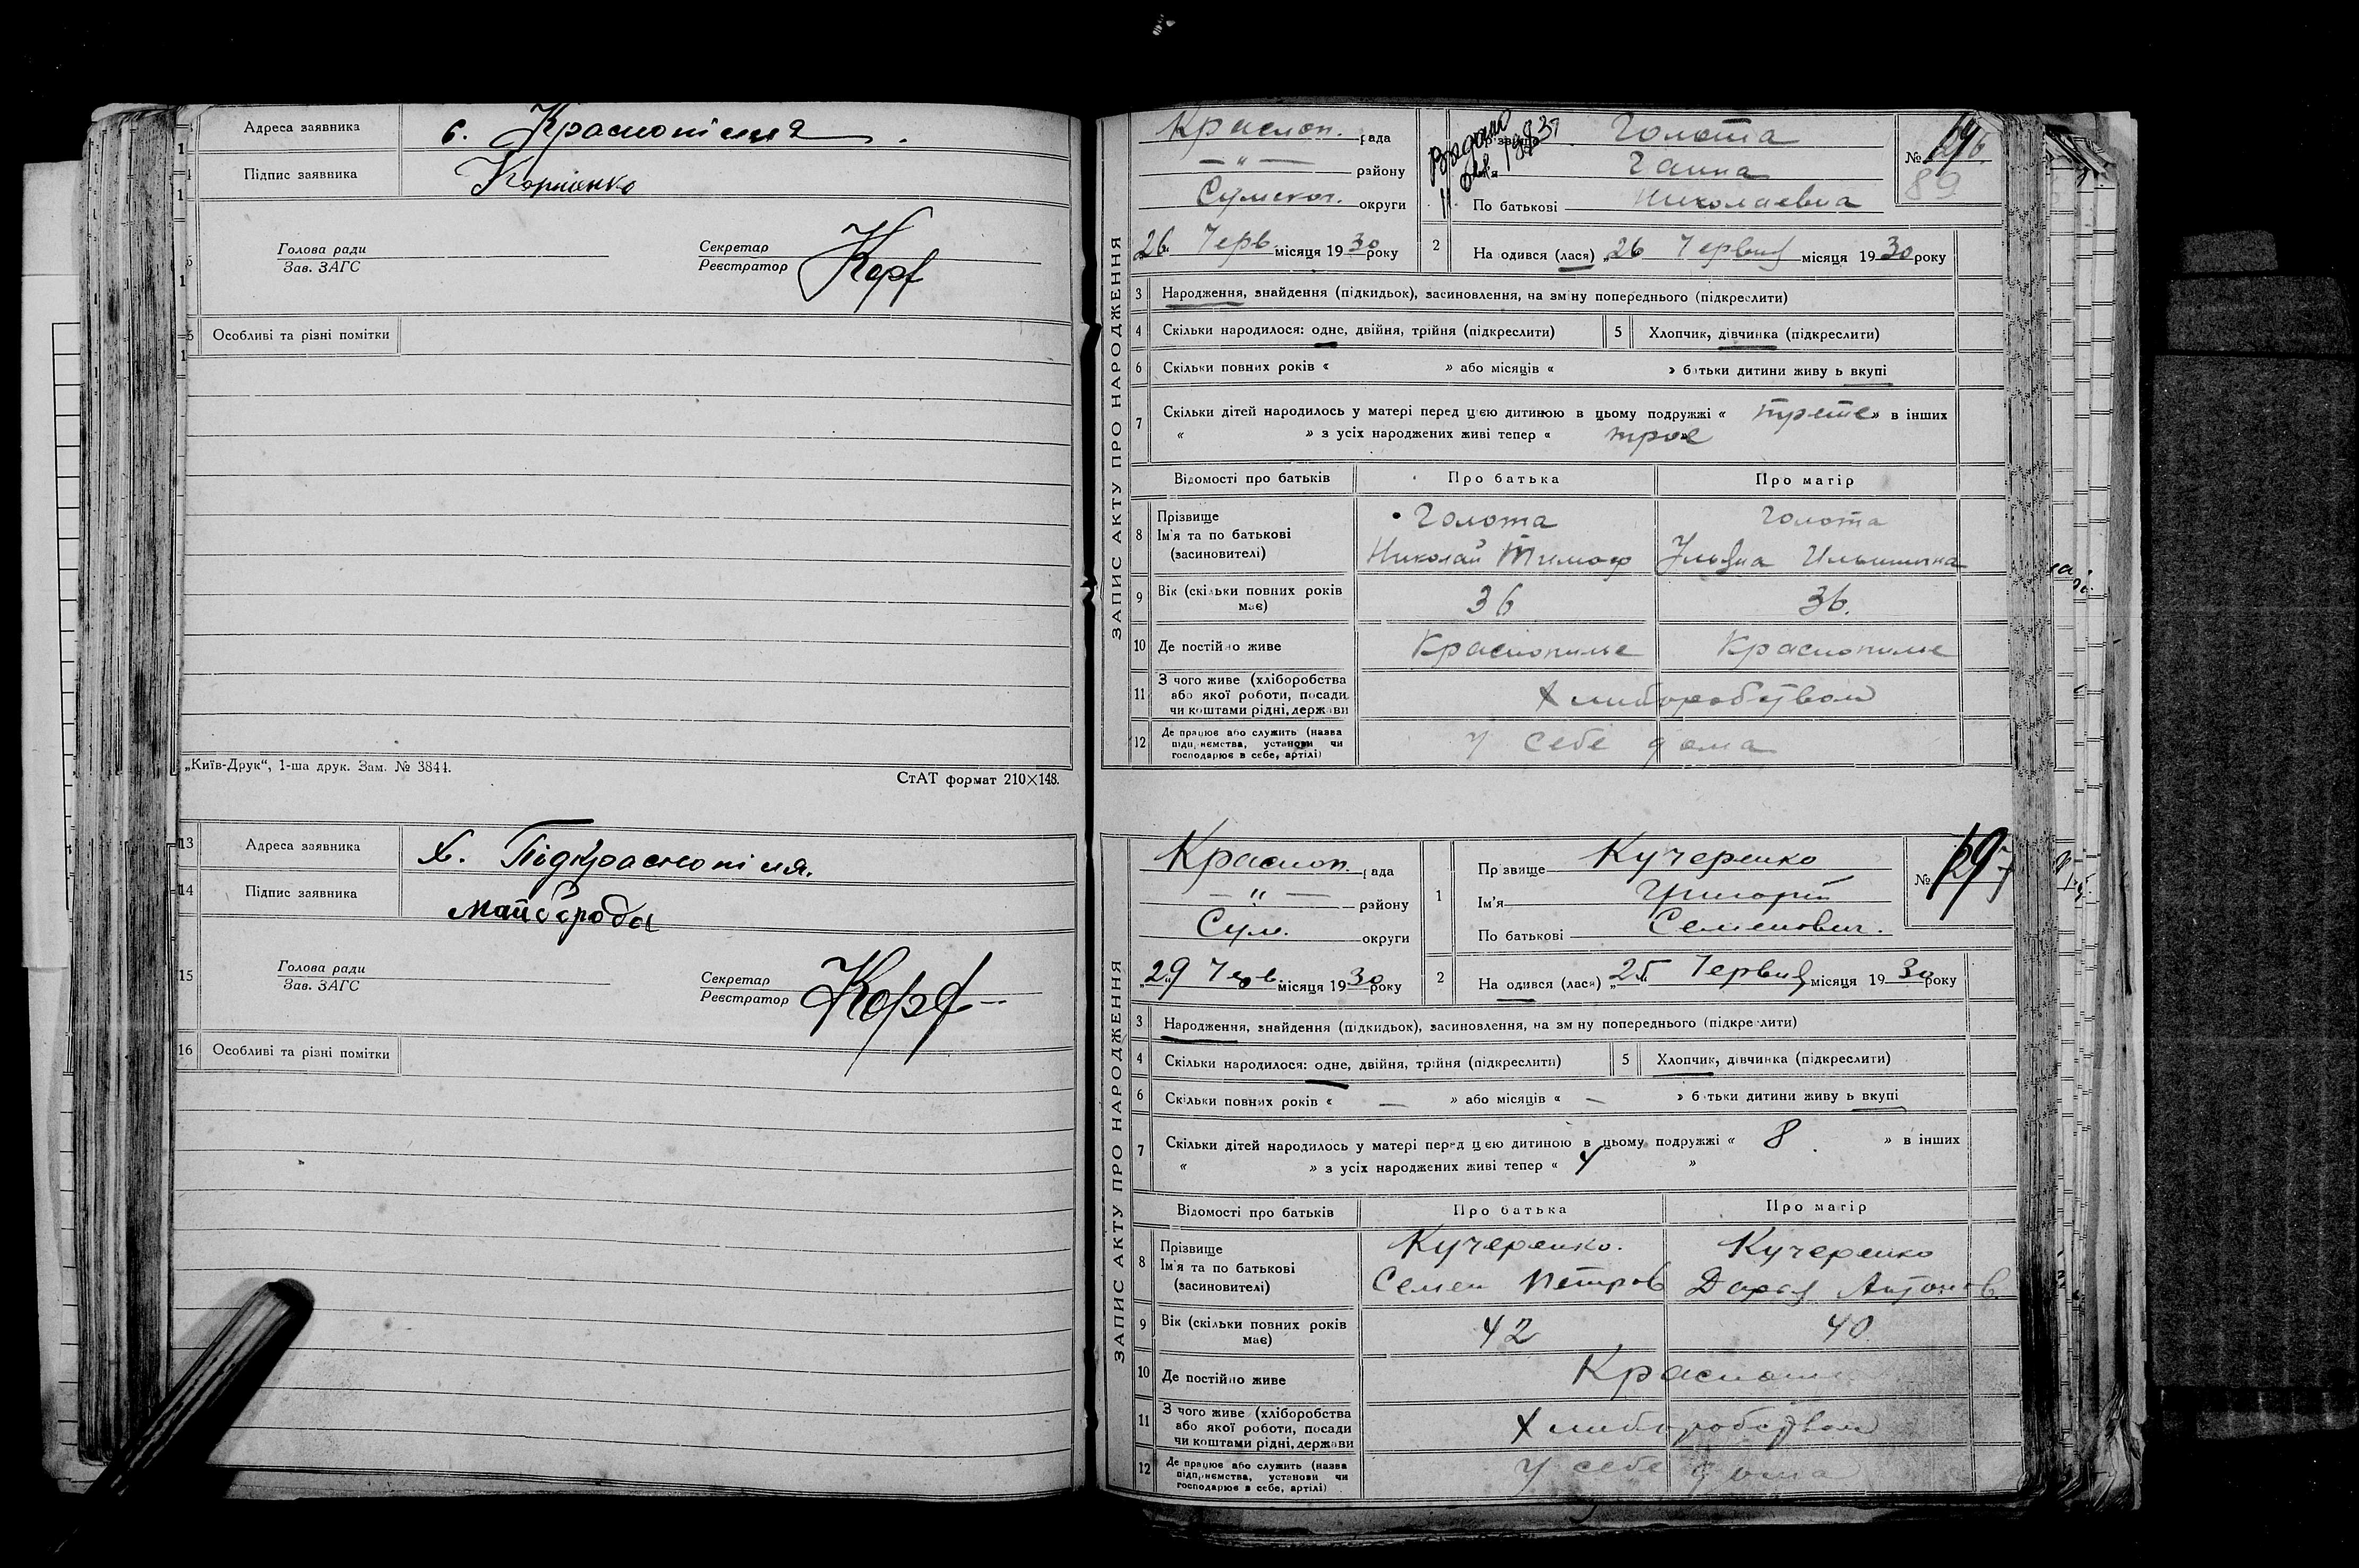 Адреса заявника
с. Краснопілля.
Підпис заявника
Корнієнко
Голова ради
Зав. ЗАГС
Секретар
Реєстратор
Особливі та різні помітки
„Київ-Друк“, 1-ша друк. Зам. № 3844.
СтАТ формат 210×148.
13 Адреса заявника
х. Підкраснопілля.
14 Підпис заявника
Майборода
15 Голова ради
Зав. ЗАГС
Секретар
Реєстратор
16 Особливі та різні помітки
ЗАПИС АКТУ ПРО НАРОДЖЕННЯ
Краспоп. рада
— „ — району
Сумскої. округи
26 Черв. місяця 1930 року
Видано
Голота
Ганна
По батькові Николаевна
№
89
2 На одився (лася) „26 Червня місяця 1930 року
3 Народження, знайдення (підкидьок), засиновлення, на зміну попереднього (підкреслити)
4 Скільки народилося: одне, двійня, трійня (підкреслити) 5 Хлопчик, дівчинка (підкреслити)
6 Скільки повних років « » або місяців « » батьки дитини живуть вкупі
7 Скільки дітей народилось у матері перед цією дитиною в цьому подружжі « трете » в інших
« » з усіх народжених живі тепер « трое »
Відомості про батьків Про батька Про матір
8 Прізвище
Ім'я та по батькові
(засиновителі)
Голота
Николай Тимоф
Голота
Ильинична
9 Вік (скільки повних років має) 36 36.
10 Де постійно живе Краснопилье Краснопилье
11 З чого живе (хліборобства
або якої роботи, посади
чи коштами рідні, держави
Хлиборобством
12 Де працює або служить (назва
підприємства, установи чи
господарює в себе, артілі)
у себе дома
ЗАПИС АКТУ ПРО НАРОДЖЕННЯ
Красноп. рада
— „ — району
Сум. округи
„29 Черв. місяця 1930 року
1 Прізвище Кучеренко
Ім'я Григорій
По батькові Семенович.
№
2 На одився (лася) „25 Червня місяця 1930 року
3 Народження, знайдення (підкидьок), засиновлення, на зміну попереднього (підкреслити)
4 Скільки народилося: одне, двійня, трійня (підкреслити) 5 Хлопчик, дівчинка (підкреслити)
6 Скільки повних років « — » або місяців « — » батьки дитини живуть вкупі
7 Скільки дітей народилось у матері перед цією дитиною в цьому подружжі « 8 » в інших
« » з усіх народжених живі тепер « 4 »
Відомості про батьків Про батька Про матір
8 Прізвище
Ім'я та по батькові
(засиновителі)
Кучеренко.
Семен Петров
Кучеренко
Дарья Антонов.
9 Вік (скільки повних років має) 42 40.
10 Де постійно живе
11 З чого живе (хліборобства
або якої роботи, посади
чи коштами рідні, держави
Хлиборобством
12 Де працює або служить (назва
підприємства, установи чи
господарює в себе, артілі)
у себе дома